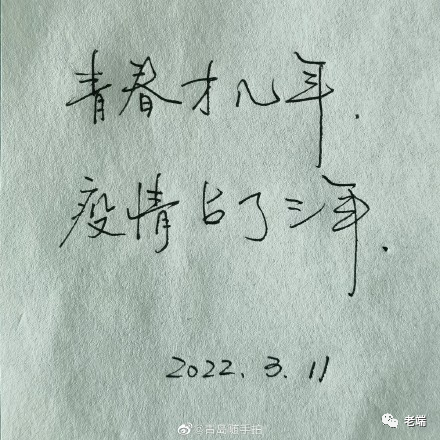 青春才几年.
疫情占了三年.
2022.3.11
@青岛随手拍
老端